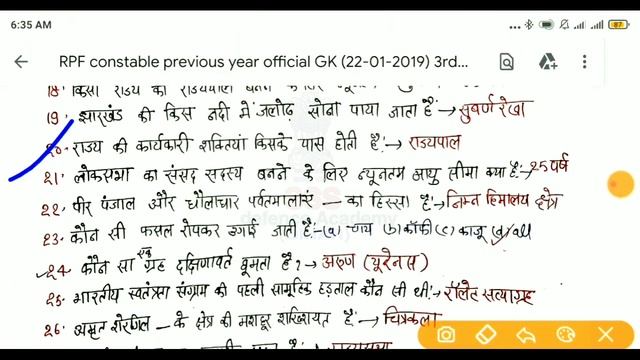 6:35 AM
87
RPF constable previous year official GK (22-01-2019) 3rd...
18. किसी राज्य का राज्यपाल बनने के लिए
19. झारखंड की किस नदी में जलोढ़ सोना पाया जाता है → सुवर्ण रेखा
20. राज्य की कार्यकारी शक्तियां किसके पास होती है:→ राज्यपाल
21. लोकसभा का संसद सदस्य बनने के लिए न्यूनतम आयु सीमा क्या है:→ 25 वर्ष
22. पीर पंजाल और धौलाधार पर्वतमालाएं — का हिस्सा है:→ निम्न हिमालय क्षेत्र
defence Academy
23. कौन सी फसल रोपकर उगाई जाती है:-(a) चाय (b) कॉफी (c) काजू (d) all
24. कौन सा एक ग्रह दक्षिणावर्त घूमता है? → अरुण (यूरेनस)
25. भारतीय स्वतंत्रता संग्राम की पहली सामूहिक हड़ताल कौन सी थी:→ रॉलेट सत्याग्रह
26. अमृता शेरगिल — के क्षेत्र की मशहूर शख्सियत है:→ चित्रकला